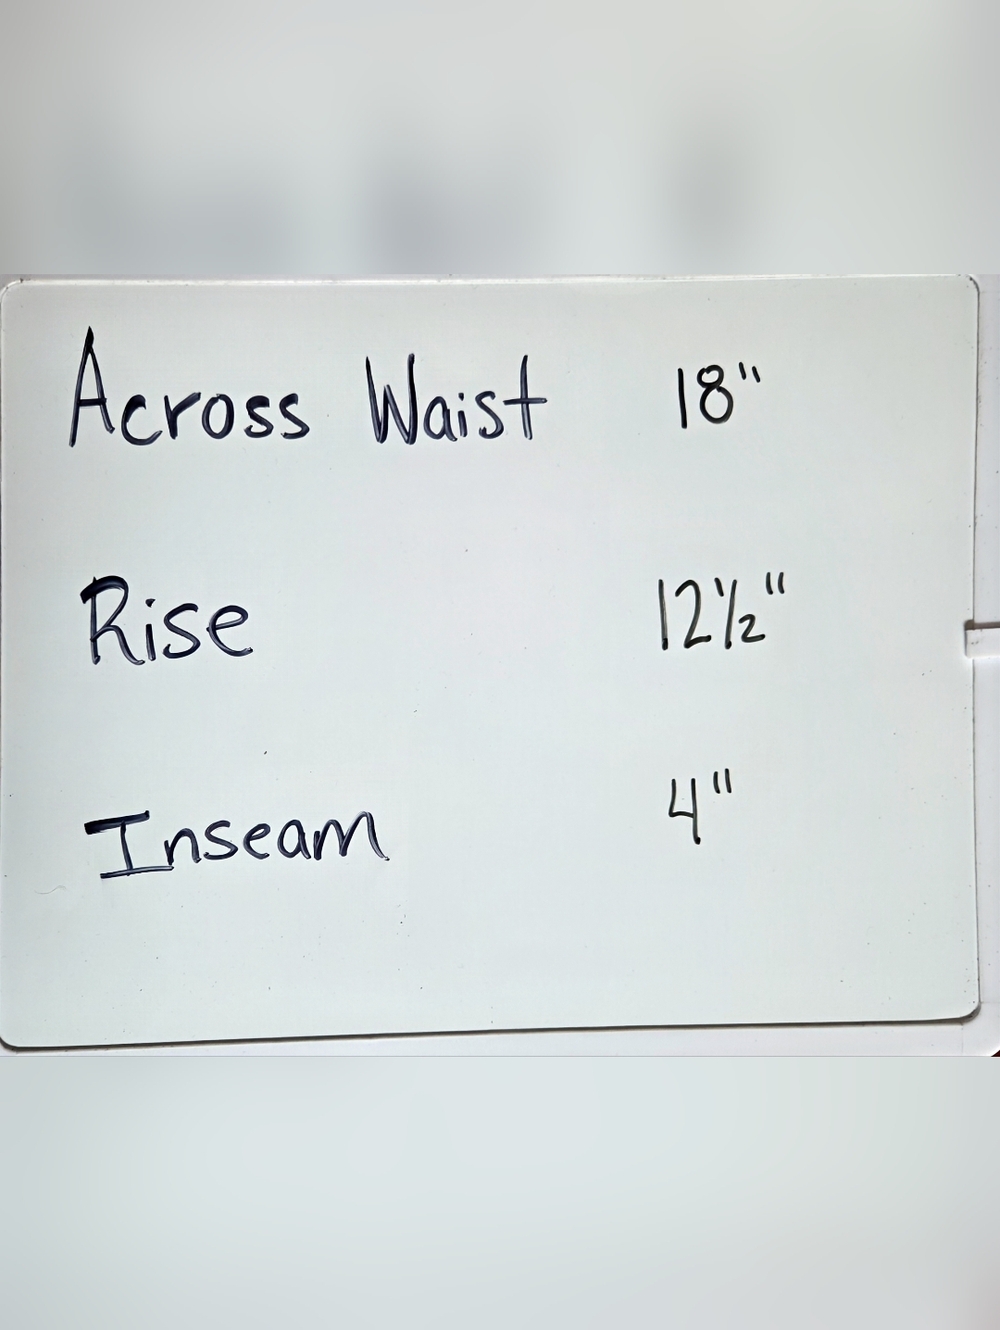 Across Waist 18"
Rise 12½"
Inseam 4"